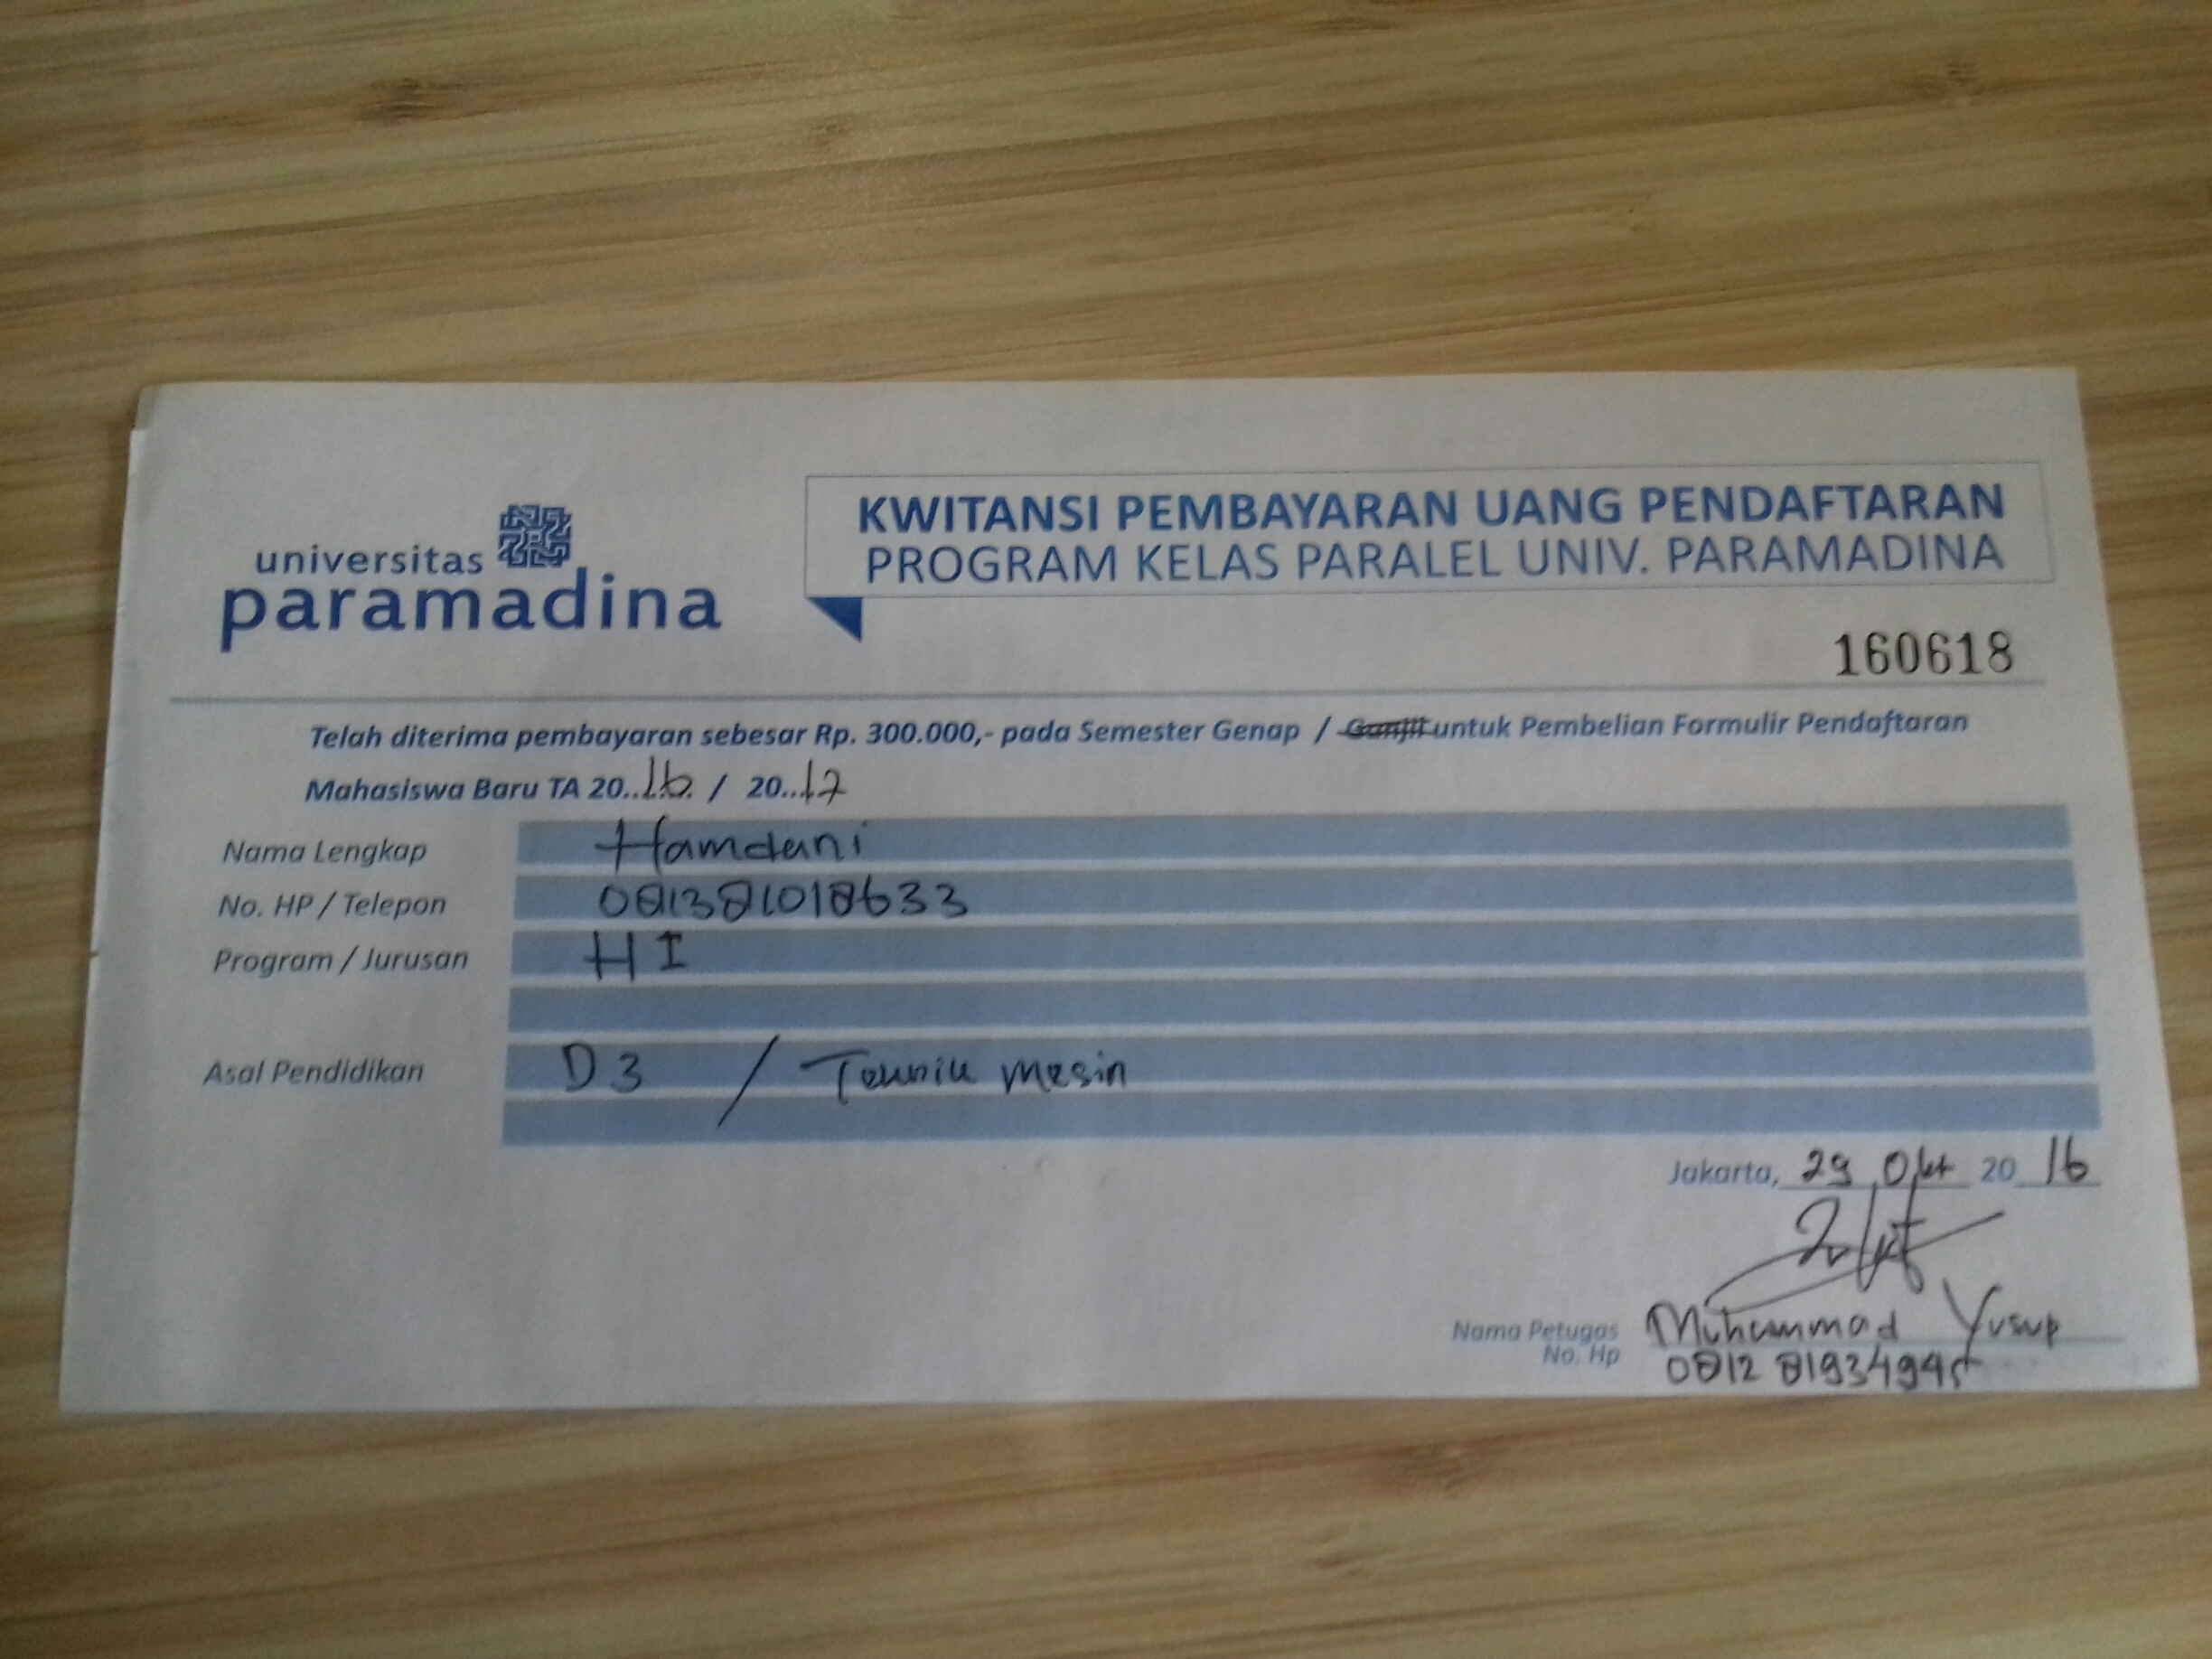 universitas
paramadina
KWITANSI PEMBAYARAN UANG PENDAFTARAN
PROGRAM KELAS PARALEL UNIV. PARAMADINA
160618
Telah diterima pembayaran sebesar Rp. 300.000,- pada Semester Genap / Ganjil untuk Pembelian Formulir Pendaftaran
Mahasiswa Baru TA 20..16. / 20..17
Nama Lengkap Hamdani
No. HP / Telepon 081381018633
Program / Jurusan HI
Asal Pendidikan D3 / Teknik Mesin
Jakarta, 29 Okt 20 16
Nama Petugas Muhammad Yusup
No. Hp 0812 81934945